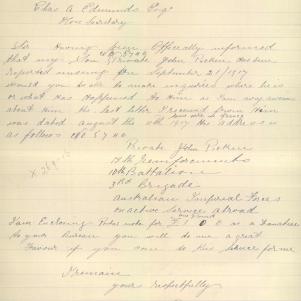 Chas A Edmunds Esqr
Hon Secretary
Sir Having been Officially informed
that my Son Private John Picken has been
reported missing for September 21/1917
would you be able to make inquiries where he is
or what has Happened to Him as I am very anxious
about Him the last letter I received from Him
was dated august the 1917 His address is
as follows No 5740
Private John Picken
17th Reinforcements
10th Battalion
3rd Brigade
Australian Imperial Forces
on active service abroad
I am Enclosing Postal note for as a Donation
to your bureau you will do me a great
Favour if you some to this service for me
I remain
yours respectfully